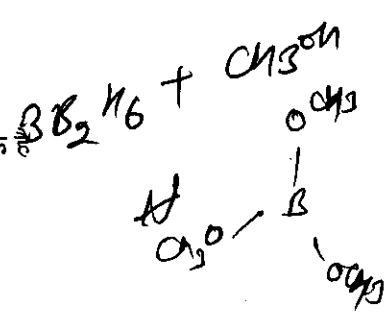 B₂H₆ + CH₃OH
OCH₃
|
CH₃O / B
\ OCH₃